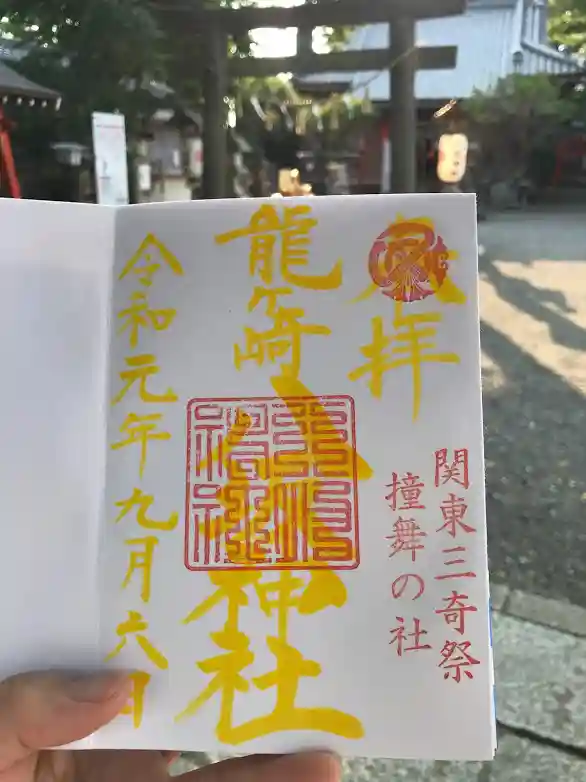 奉拝
関東三奇祭
撞舞の社
龍ヶ崎八坂神社
令和元年九月六日